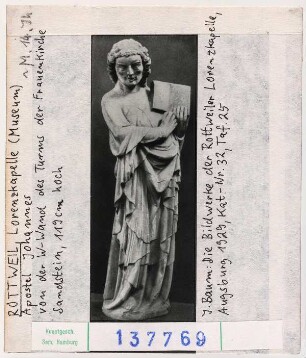 RATTWEIL, Lorenzkapelle (Museum) ~ M. 14. Jh
Apostel Johannes
von der W-Wand des Turms der Frauenkirche
Sandstein, 119cm hoch
J. Baum: Die Bildwerke der Rottweiler Lorenzkapelle,
Augsburg 1929, Kat-Nr. 32, Taf. 25
Kunstgesch.
Sem. Hamburg
137769